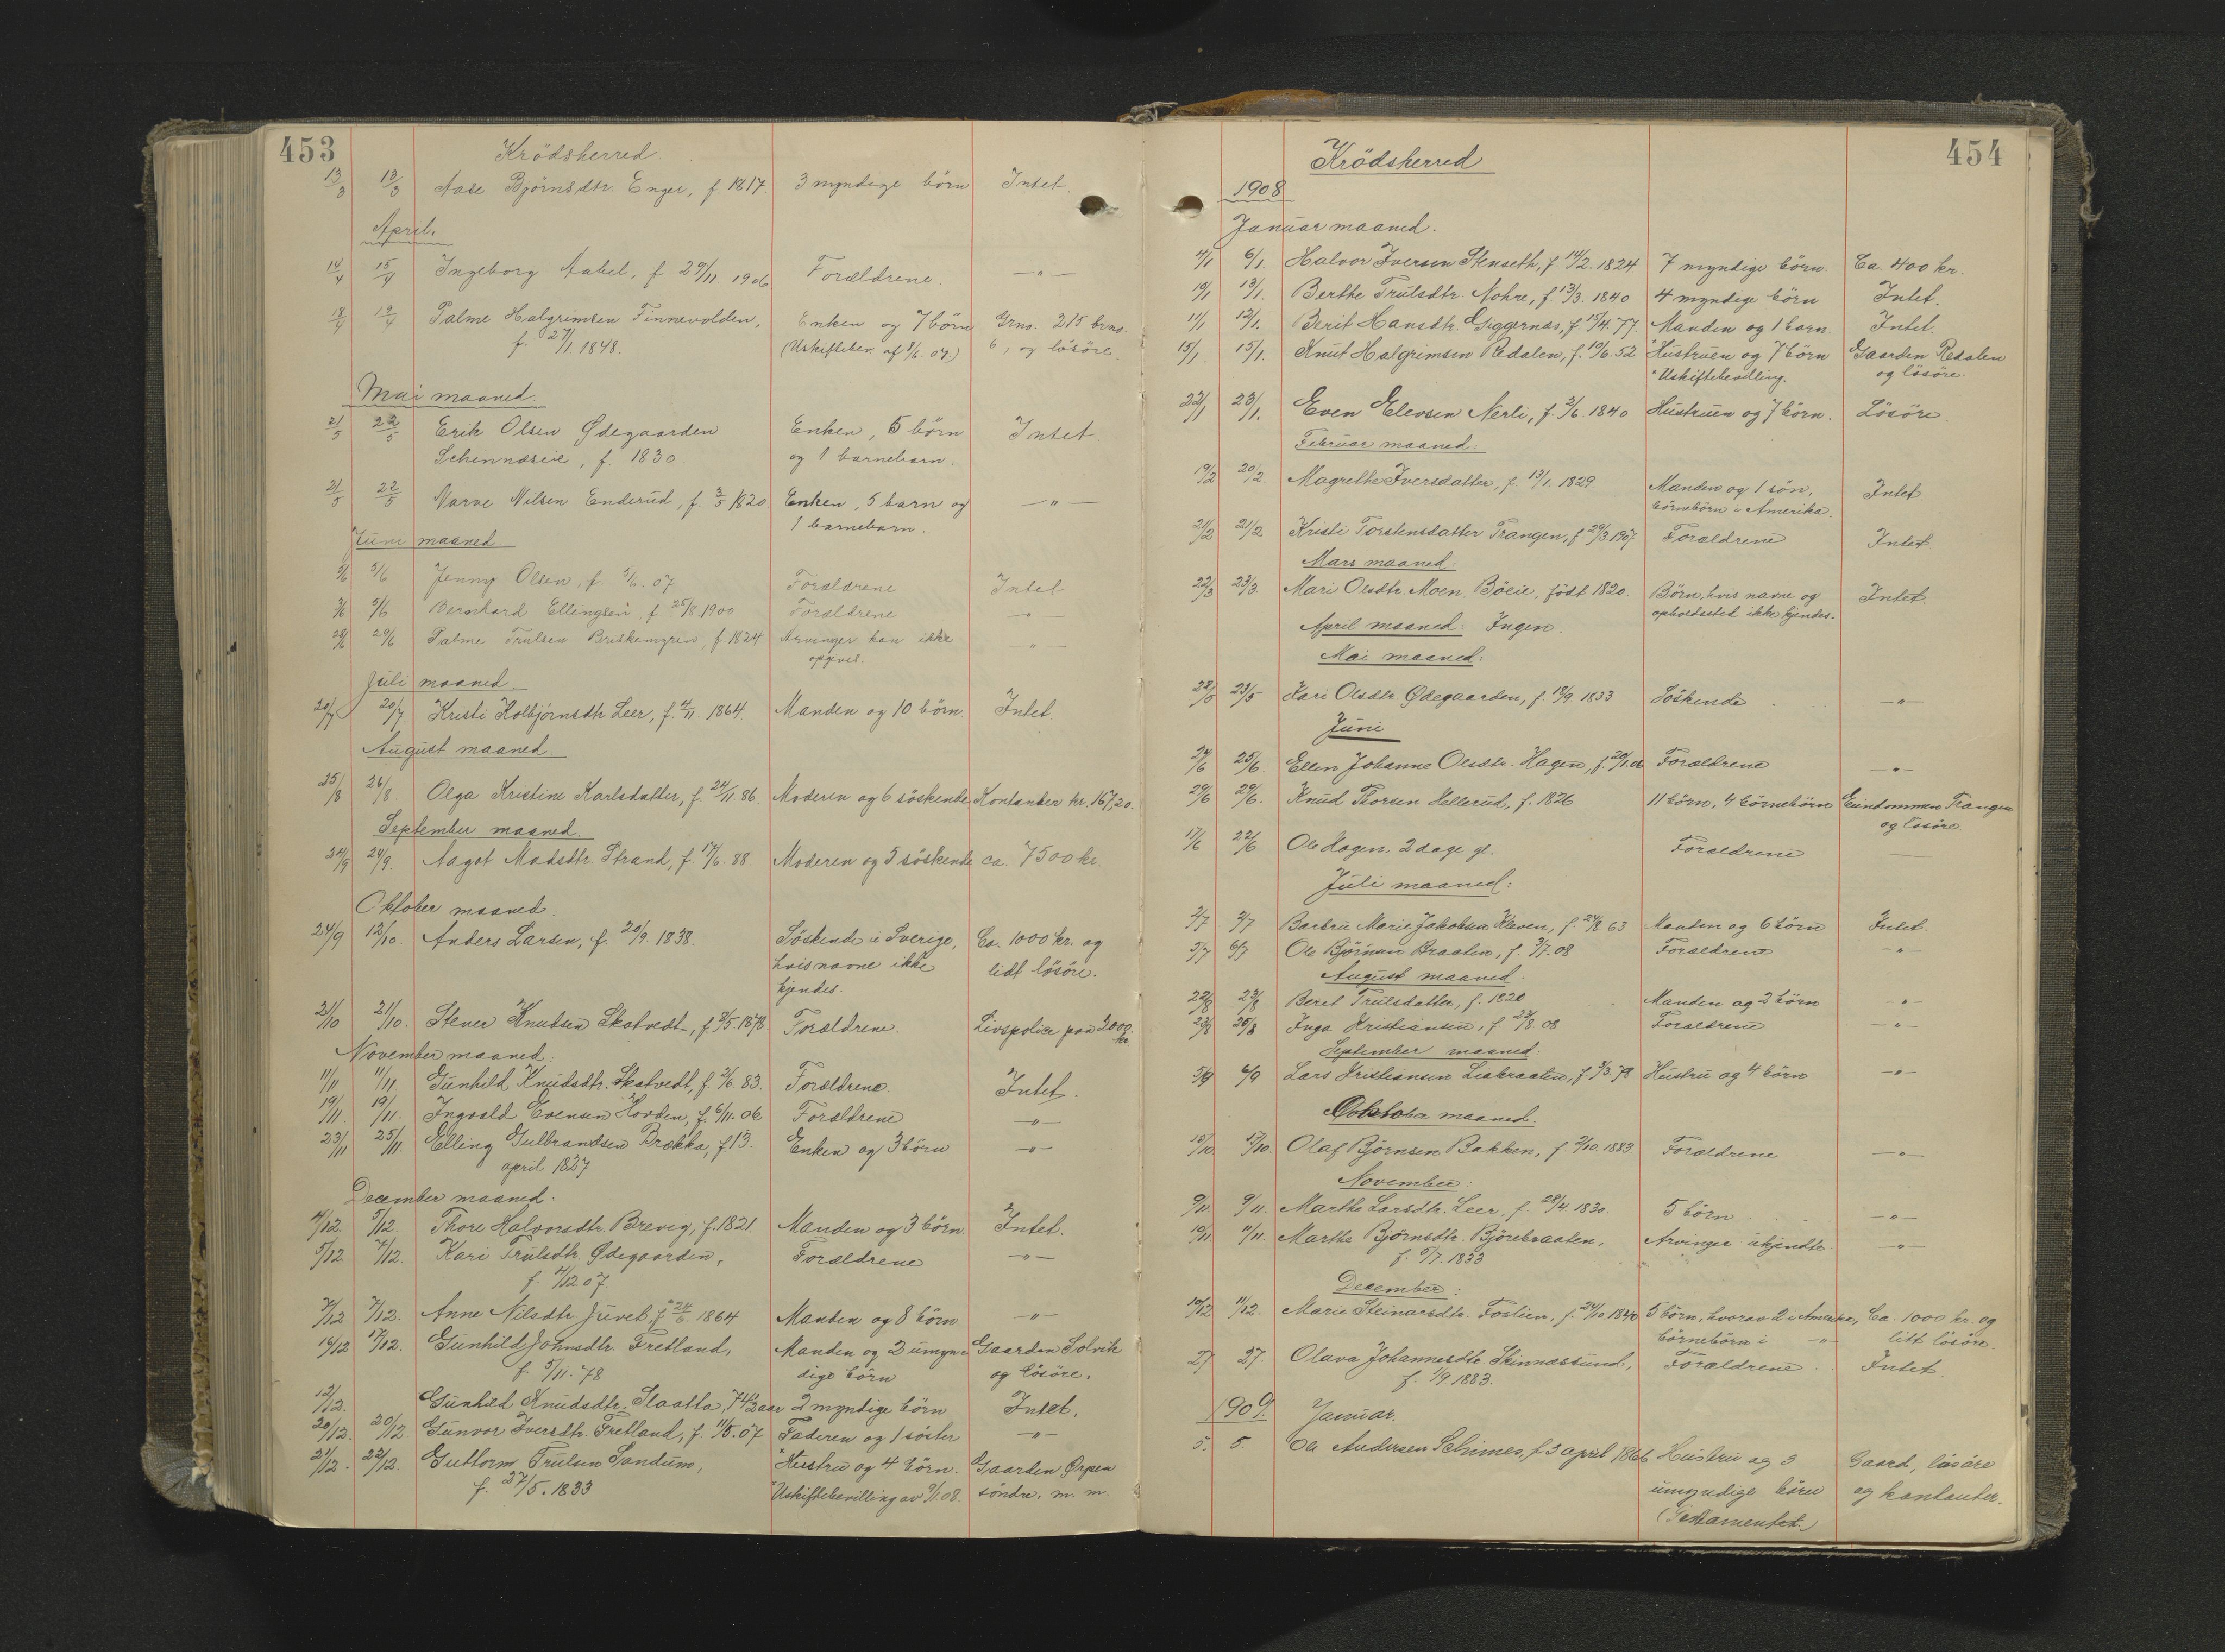 453
Krödsherred
13/3 13/3 Aase Björnsdtr. Enger, f 1817. 3 myndige börn Intet.
April.
14/4 15/4 Ingeborg Aabel, f. 29/11 1906 Forældrene. — " —
18/4 19/4 Palme Halgrimsen Finnevolden, Enken og 7 börn Grno. 215 brno.
f. 27/1 1848. (Uskiftebev. af 8/6. 07) 6, og lösöre.
Mai maaned.
21/5 22/5 Erik Olsen Ødegaarden Enken, 5 börn Intet.
f. 1830 og 1 barnebarn.
21/5 22/5 Narve Nilsen Enderud, f. 3/5 1820 Enken, 5 barn og — " —
1 barnebarn.
Juni maaned
5/6 5/6 Jenny Olsen, f. 5/6. 07 Forældrene Intet
3/6 5/6 Bernhard Ellingsen, f 25/8.1900 Forældrene — " —
28/6 29/6 Palme Trulsen f. 1824 Arvinger kan ikke — " —
opgives.
Juli maaned
20/7 20/7 Kristi Kolbjörnsdtr Leer, f. 4/11. 1864. Manden og 10 börn Intet
August maaned.
25/8 26/8. Olga Kristine Karlsdatter, f. 24/11. 86 Moderen og 6 söskende Kontanter kr. 167,20.
September maaned.
24/9 24/9. Aagot Madsdtr. Strand, f. 17/6. 88. Moderen og 5 söskende ca. 7500 kr.
Oktober maaned.
24/9 12/10. Anders Larsen, f. 20/9. 1838. Söskende i Sverige, Ca. 1000 kr. og
hvis navne ikke lidt lösöre.
kjendes.
21/10 21/10. Stener Knudsen Skatvedt, f. 8/5. 1878 Forældrene. Livspolice paa 2000
kr.
November maaned:
11/11 11/11. Gunhild Knudsdtr. Skatvedt, f. 2/6. 83. Forældrene. Intet.
19/11 19/11. Ingvald Evensen Hovden, f. 6/11. 06 Forældrene — " —
23/11 25/11. Elling Gulbrandsen Brækka, f. 13. Enken og 3 börn — " —
april 1827
December maaned.
4/12. 5/12. Thore Halvorsdtr. Brevig, f. 1821 Manden og 3 börn Intet.
5/12 7/12. Kari Trulsdtr Ødegaarden, Forældrene — " —
f. 4/12. 07
7/12 7/12. Anne Nilsdtr. Juvet, f. 24/6. 1864 Manden og 8 börn — " —
16/12 17/12. Gunhild Johnsdtr. Fretland, Manden og 2 umyn= Gaarden Solvik
f. 5/11. 78 dige börn og lösöre.
12/12. Gunhild Knudsdtr. Slaatto, 74 1/2 aar 2 myndige börn Intet.
20/12. 20/12. Gunvor Iversdtr. Fretland, f. 11/5. 07 Faderen og 1 söster — " —
21/12. 22/12. Guttorm Trulsen Sandum, Hustru og 4 börn. Gaarden Ørpen
f. 27/5. 1833 Uskiftebevilling av 9/1. 08. söndre, m. m.
454
Krödsherred
1908
Januar maaned.
4/1 6/1. Halvor Iversen Stenseth, f 14/2. 1824 7 myndige börn. Ca. 400 kr.
10/1 13/1. Berthe Trulsdtr. Nohre, f. 13/3. 1840 4 myndige börn Intet.
11/1 12/1. Berit Hansdtr. Giggernæs, f. 15/4. 77. Manden og 1 barn. Intet.
15/1 15/1. Knut Halgrimsen Redalen, f. 10/6. 52 Hustruen og 7 börn Gaarden Redalen
Uskiftebevilling. og lösöre.
22/1 23/1. Even Elevsen Nerli, f. 2/6. 1840 Hustruen og 7 börn. Lösöre.
Februar maaned:
19/2 20/2. Magrethe Iversdatter, f. 13/1. 1829. Manden og 1 sön, Intet
börnebörn i Amerika.
21/2 21/2 Kristi Torstensdatter Trangen, f. 20/3. 1907 Forældrene Intet
Mars maaned:
22/3 23/3. Mari Olsdtr. Moen Böeie, född 1820. Börn, hvis navne og Intet.
opholdssted ikke kjendes.
April maaned: Ingen.
Mai maaned:
22/5 23/5 Kari Olsdtr. Ødegaarden, f. 18/9. 1833 Söskende — " —
Juni
24/6 25/6. Ellen Johanne Olsdtr. Hagen, f. 20/1. 06 Forældrene — " —
29/6 29/6. Knud Thorsen Hellerud, f. 1826 11 börn, 4 börnebörn Eiendommen Trangen
og lösöre.
17/6 22/6 Ole Hagen, 2 dage gl. Forældrene —
Juli maaned:
2/7 2/7 Barbru Marie Jakobsen Kleven, f. 24/8 63 Manden og 6 börn Intet
5/7 6/7 Ole Björnsen Braaten, f. 3/7. 08 Forældrene — " —
August maaned.
22/8 23/8 Beret Trulsdatter, f. 1820 Manden og 2 börn — " —
23/8 25/8 Inga Kristiansen, f 23/8. 08 Forældrene — " —
September maaned:
5/9 6/9 Lars Kristiansen Liabraaten, f. 3/3. 72 Hustru og 4 börn — " —
Oktober maaned.
15/10 17/10. Olaf Björnsen Bakken, f. 2/10. 1883 Forældrene — " —
November:
9/11. 9/11. Marthe Larsdtr. Leer, f. 28/4. 1830. 5 börn — " —
10/11 11/11. Marthe Björnsdtr. Björebraaten, Arvinger ukjendte. — " —
f. 5/7. 1833
December:
10/12 11/12. Marie Steinarsdtr. Foslien, f. 24/10. 1840 5 börn, hvorav 2 i Amerika, Ca. 1000 kr. og
börnebörn i — " — litt lösöre.
27 27. Olava Johannesdtr Skinnæssund, Forældrene. Intet.
f. 1/9. 1883.
1909. Januar.
5. 5. Ole Andersen f. 3 april 1866 Hustru og 3 Gaard, lösöre
umyndige börn og kontanter.
(Testamentet)